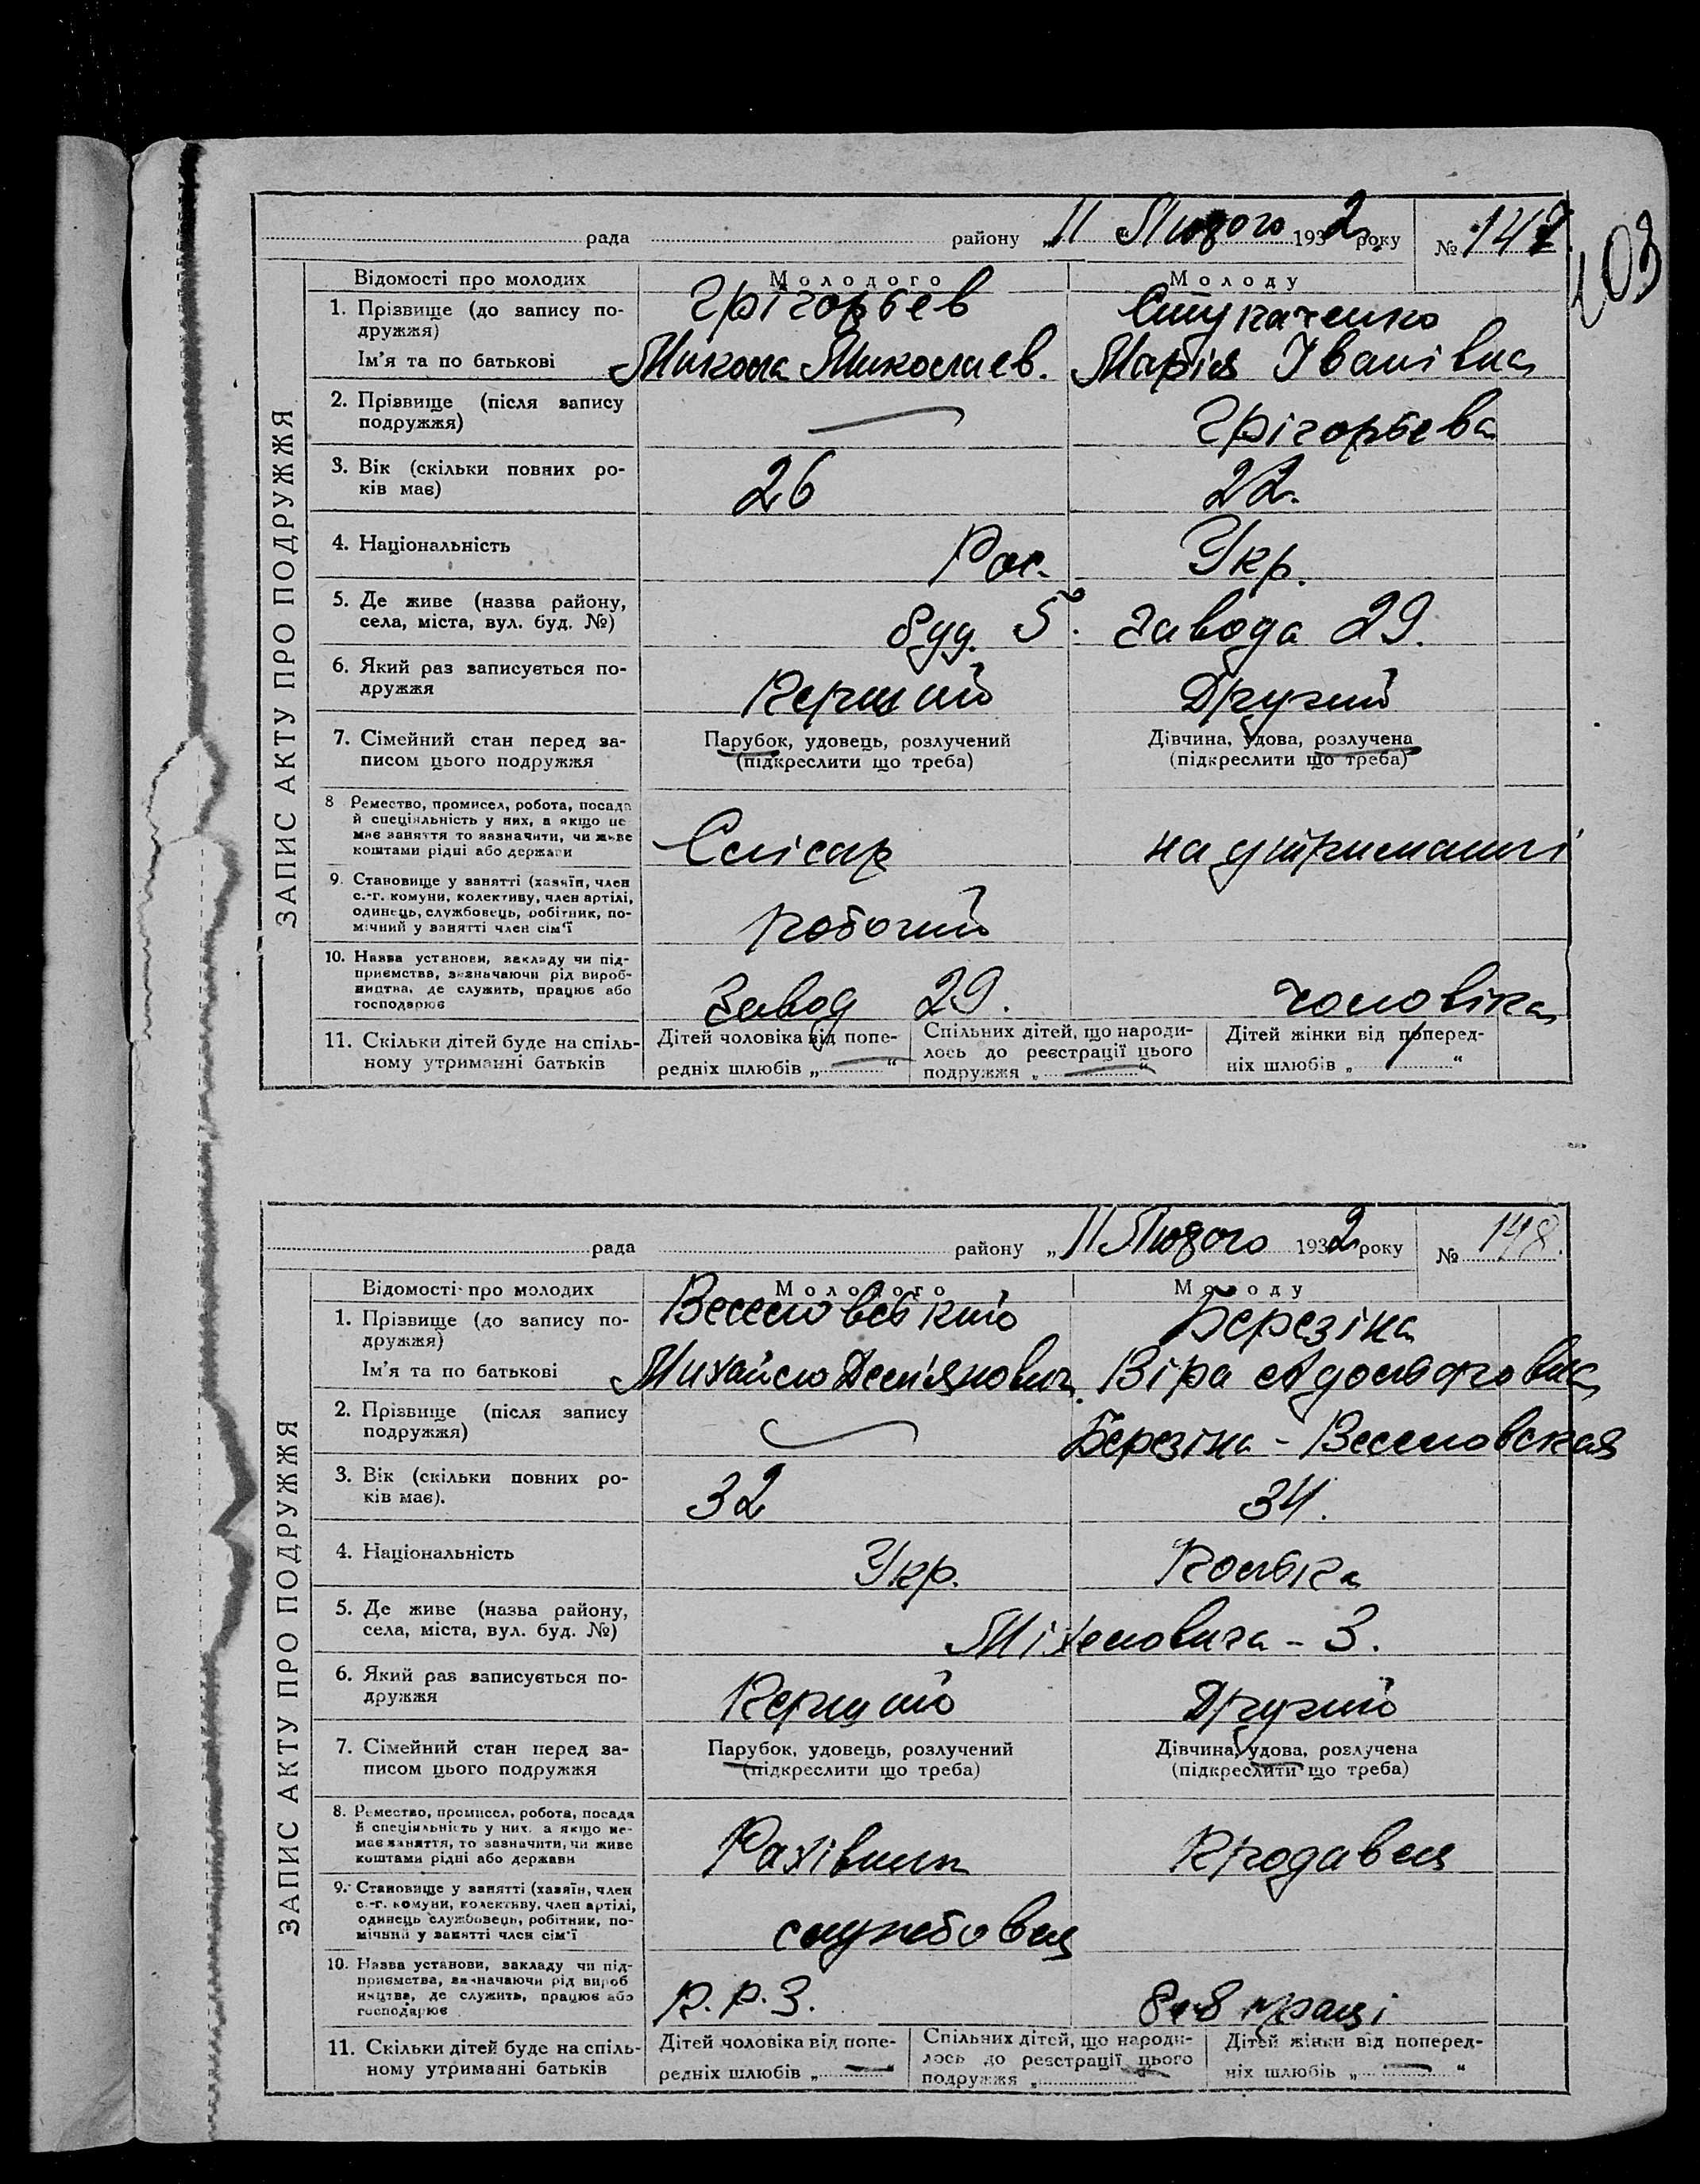 103
рада району „11 Лютого 1932 року № 147
ЗАПИС АКТУ ПРО ПОДРУЖЖЯ
Відомості про молодих Молодого Молоду
1. Прізвище (до запису по-
дружжя) Грігорьев Стукаченко
Ім'я та по батькові Микола Миколаев. Марія Іванівна
2. Прізвище (після запису
подружжя) — Грігорьева
3. Вік (скільки повних ро-
ків має) 26 22.
4. Національність Рос. Укр.
5. Де живе (назва району,
села, міста, вул. буд. №) буд. 5. завода 29.
6. Який раз записується по-
дружжя Перший Другий
7. Сімейний стан перед за- Парубок, удовець, розлучений Дівчина, удова, розлучена
писом цього подружжя (підкреслити що треба) (підкреслити що треба)
8 Ремество, промисел, робота, посада
й спеціяльність у них, а якщо не
має заняття то зазначити, чи живе
коштами рідні або держави Слісар на утриманні
9. Становище у занятті (хазяїн, член
с.-г. комуни, колективу, член артілі,
одинець, службовець, робітник, по-
мічний у занятті член сім'ї робочий
10. Назва установи, закладу чи під-
приємства, зазначаючи рід вироб-
ництва, де служить, працює або
господарює Завод 29. чоловіка
11. Скільки дітей буде на спіль- Дітей чоловіка від попе- Спільних дітей, що народи- Дітей жінки від поперед-
ному утриманні батьків редніх шлюбів „ — “ лось до реєстрації цього ніх шлюбів „ — “
подружжя „ — “
рада району „11 Лютого 1932 року № 148.
ЗАПИС АКТУ ПРО ПОДРУЖЖЯ
Відомості про молодих Молодого Молоду
1. Прізвище (до запису по-
дружжя) Березіна
Ім'я та по батькові Михайло Дем'янович Віра Адольфовна
2. Прізвище (після запису
подружжя) — Березіна - Веселовская
3. Вік (скільки повних ро-
ків має). 32 34.
4. Національність Укр. Полька
5. Де живе (назва району,
села, міста, вул. буд. №) - 3.
6. Який раз записується по-
дружжя Перший Другий
7. Сімейний стан перед за- Парубок, удовець, розлучений Дівчина, удова, розлучена
писом цього подружжя (підкреслити що треба) (підкреслити що треба)
8. Ремество, промисел, робота, посада
й спеціяльність у них, а якщо не-
має заняття, то зазначити, чи живе
коштами рідні або держави Рахівник Продавец
9. Становище у занятті (хазяїн, член
с.-г. комуни, колективу, член артілі,
одинець службовець, робітник, по-
мічний у занятті член сім'ї службовец
10. Назва установи, закладу чи під-
приємства, зазначаючи рід вироб
ництва, де служить, працює або
господарює П.Р.З. праці
11. Скільки дітей буде на спіль- Дітей чоловіка від попе- Спільних дітей, що народи- Дітей жінки від поперед-
ному утриманні батьків редніх шлюбів „ — “ лось до реєстрації цього ніх шлюбів „ — “
подружжя „ — “